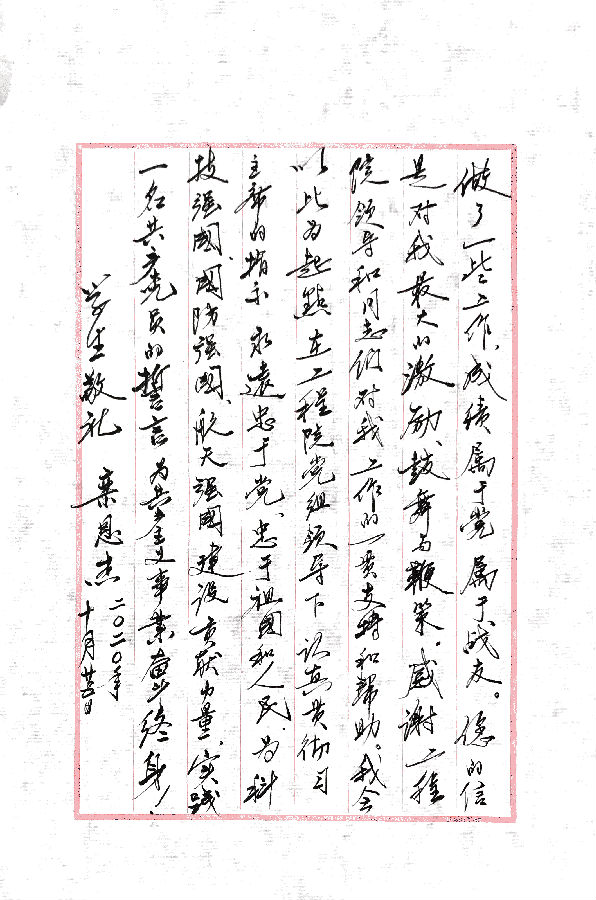 做了一些工作，成績属于党属于战友。您的信
是对我最大的激励、鼓舞与鞭策。感谢工程
院领导和同志们对我工作的一贯支持和帮助。我会
以此为起點在工程院党组领导下认真贯彻习
主席的指示永遠忠于党、忠于祖國和人民，为科
技强國、國防强國、航天强國建设贡献力量，实践
一名共产党员的誓言为共产主义事業奮斗终身！
学生敬礼
栾恩杰
二〇二〇年
十月廿日